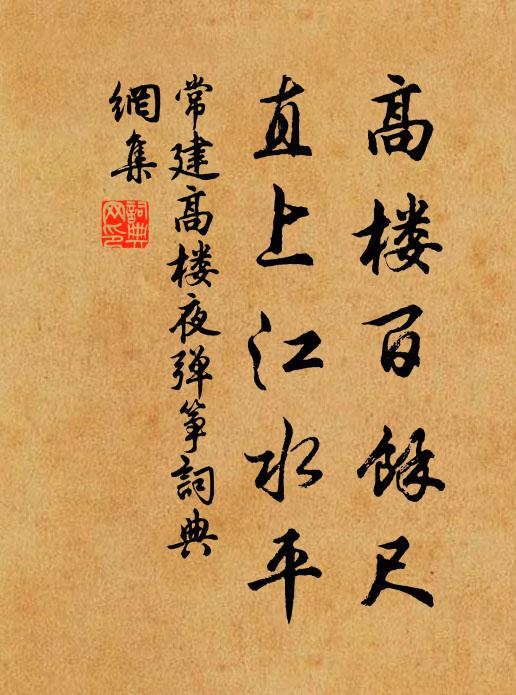 高楼百餘尺
直上江水平
常建高楼夜弹筝詞典
網集
詞典
网印